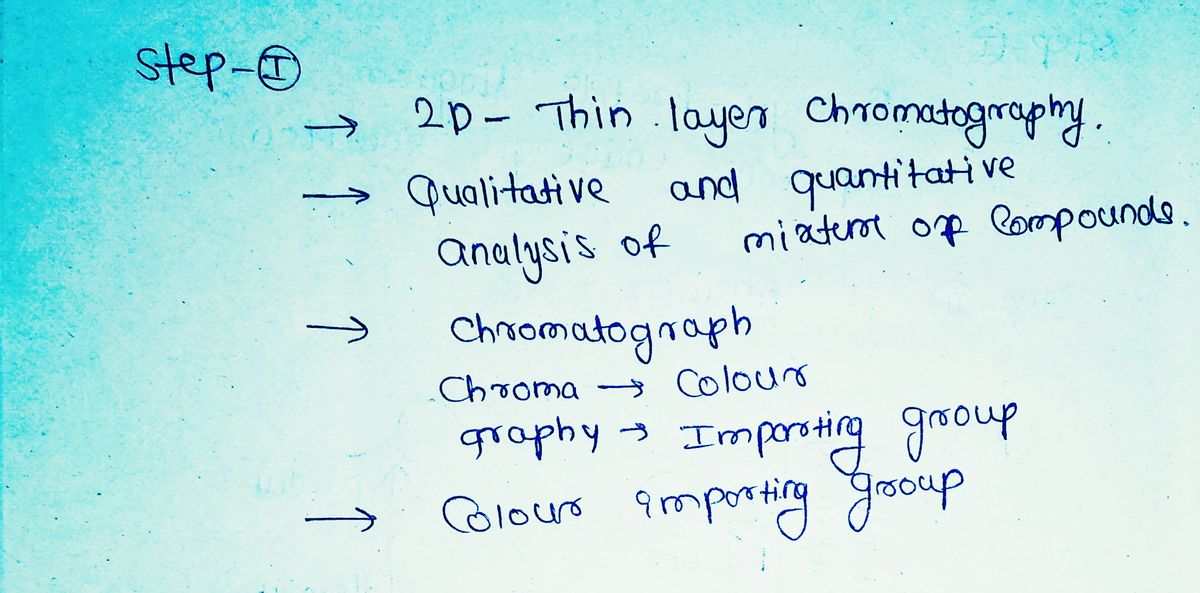 Step-Ⓘ
→ 2D - Thin layer Chromatography.
→ Qualitative and quantitative
analysis of mixture of Compounds.
→ Chromatograph
Chroma → Colour
graphy → Imparting group
→ Colour imparting group